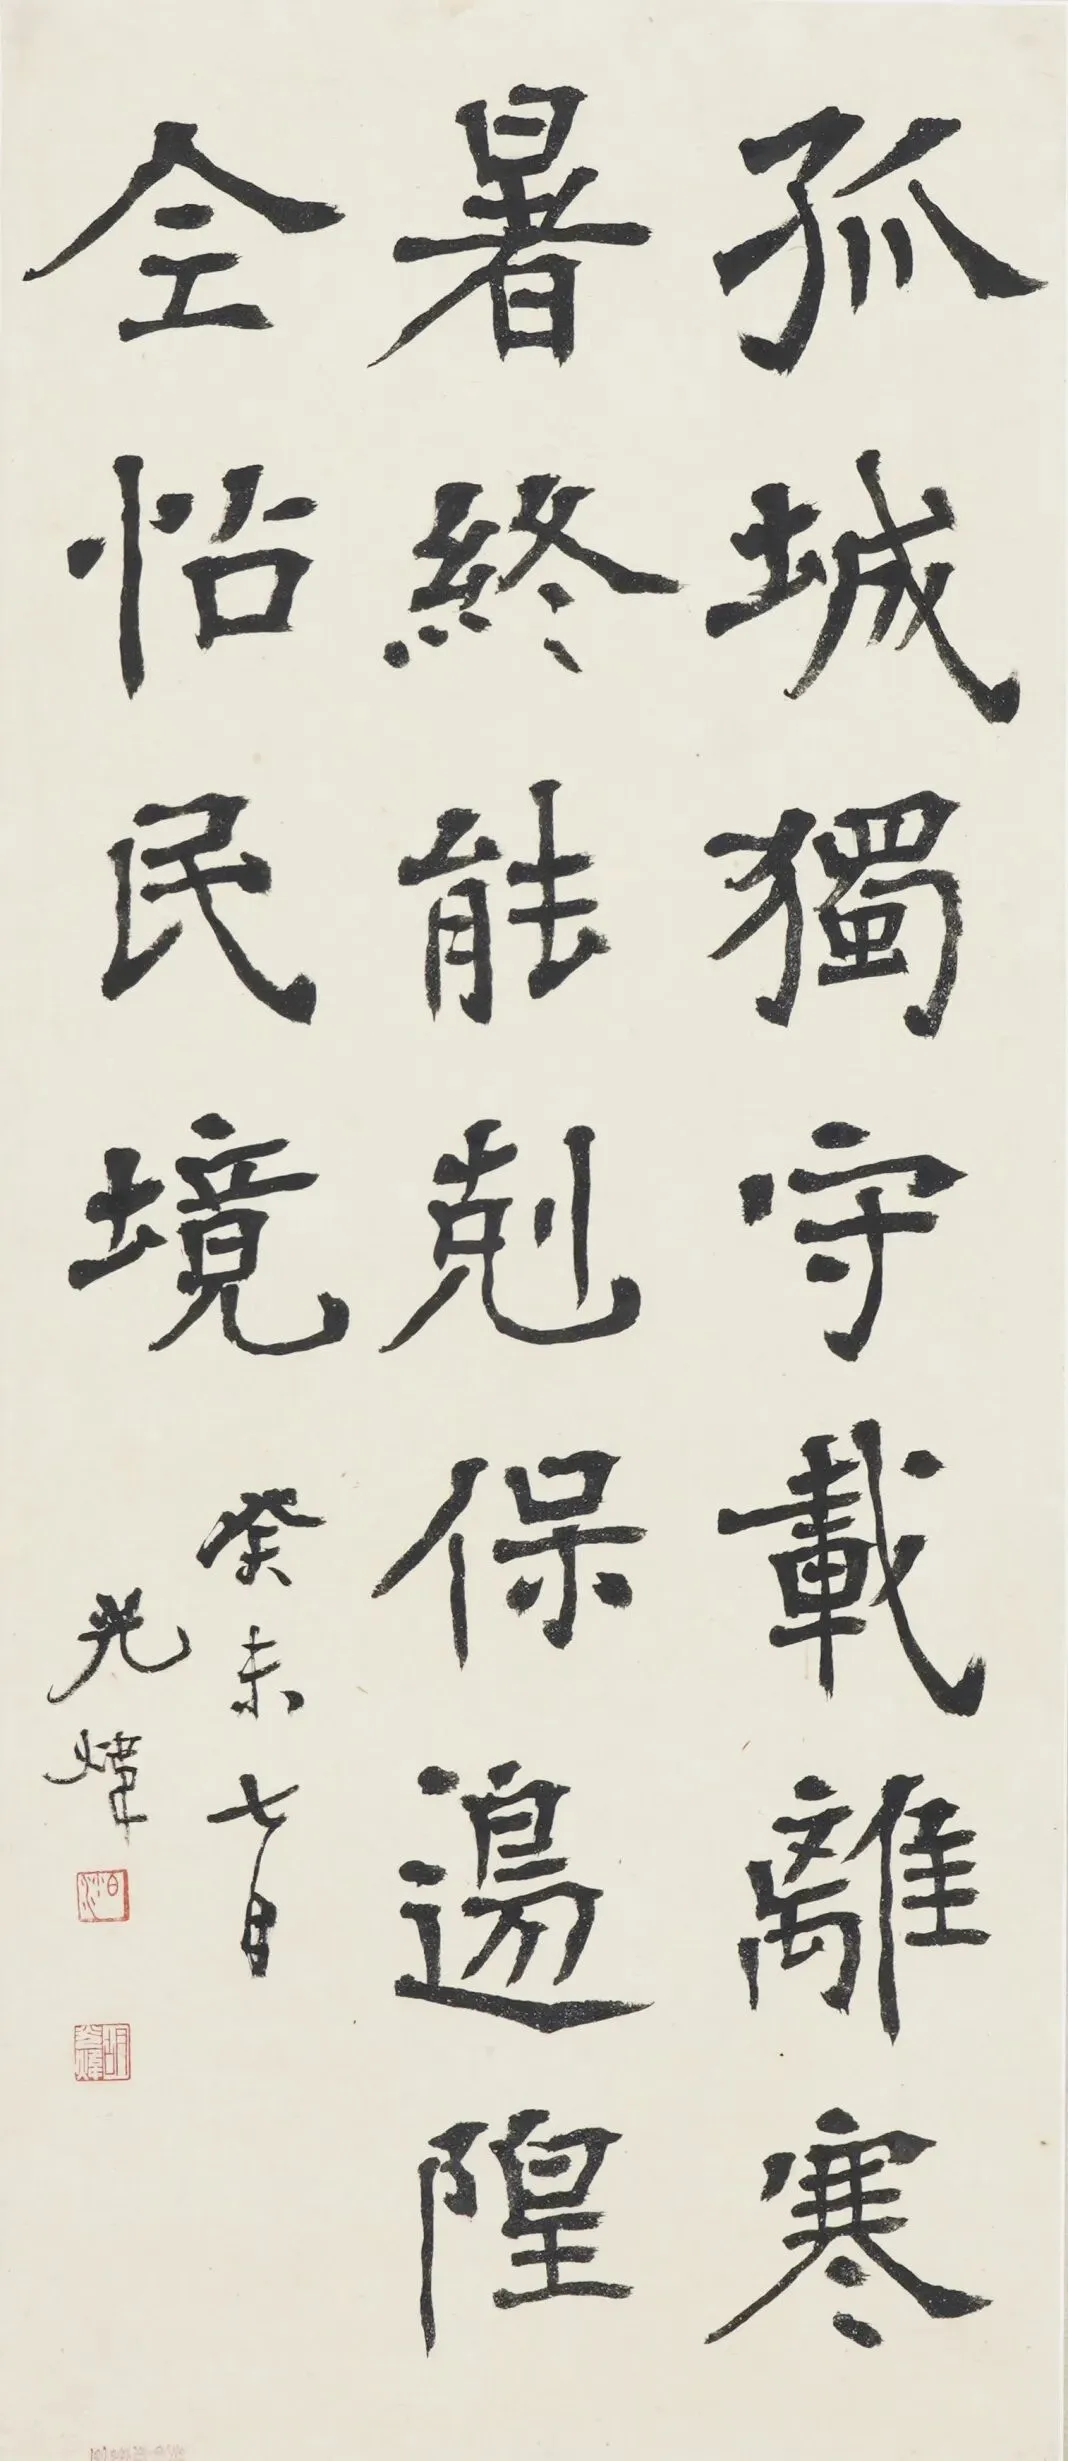 孤城獨守載離寒
暑終能剋保邊隍
全怡民境
癸未七月
光煒
胡光煒